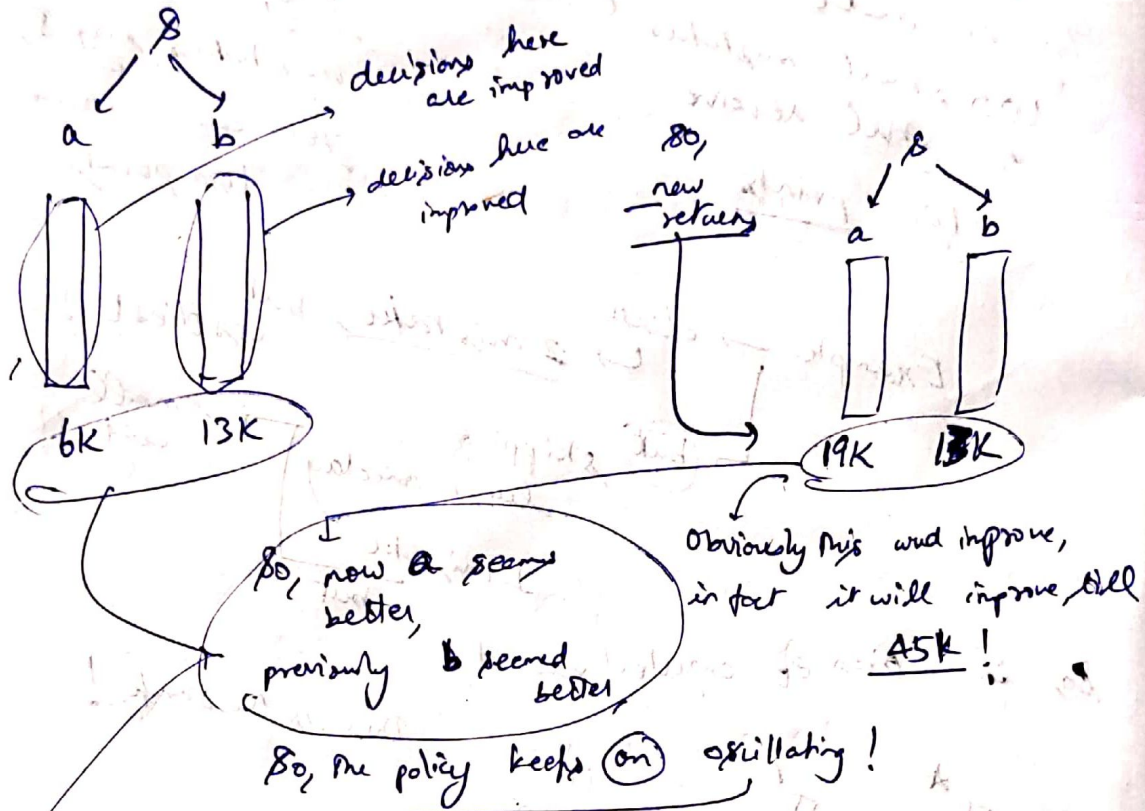 s
a b
decisions here
are improved
decisions here are
improved
6K 13K
So,
new
returns
s
a b
19K 13K
So, now a seems
better,
previously b seemed
better
Obviously this wud improve,
in fact it will improve, till
45K !
So, the policy keeps on oscillating !